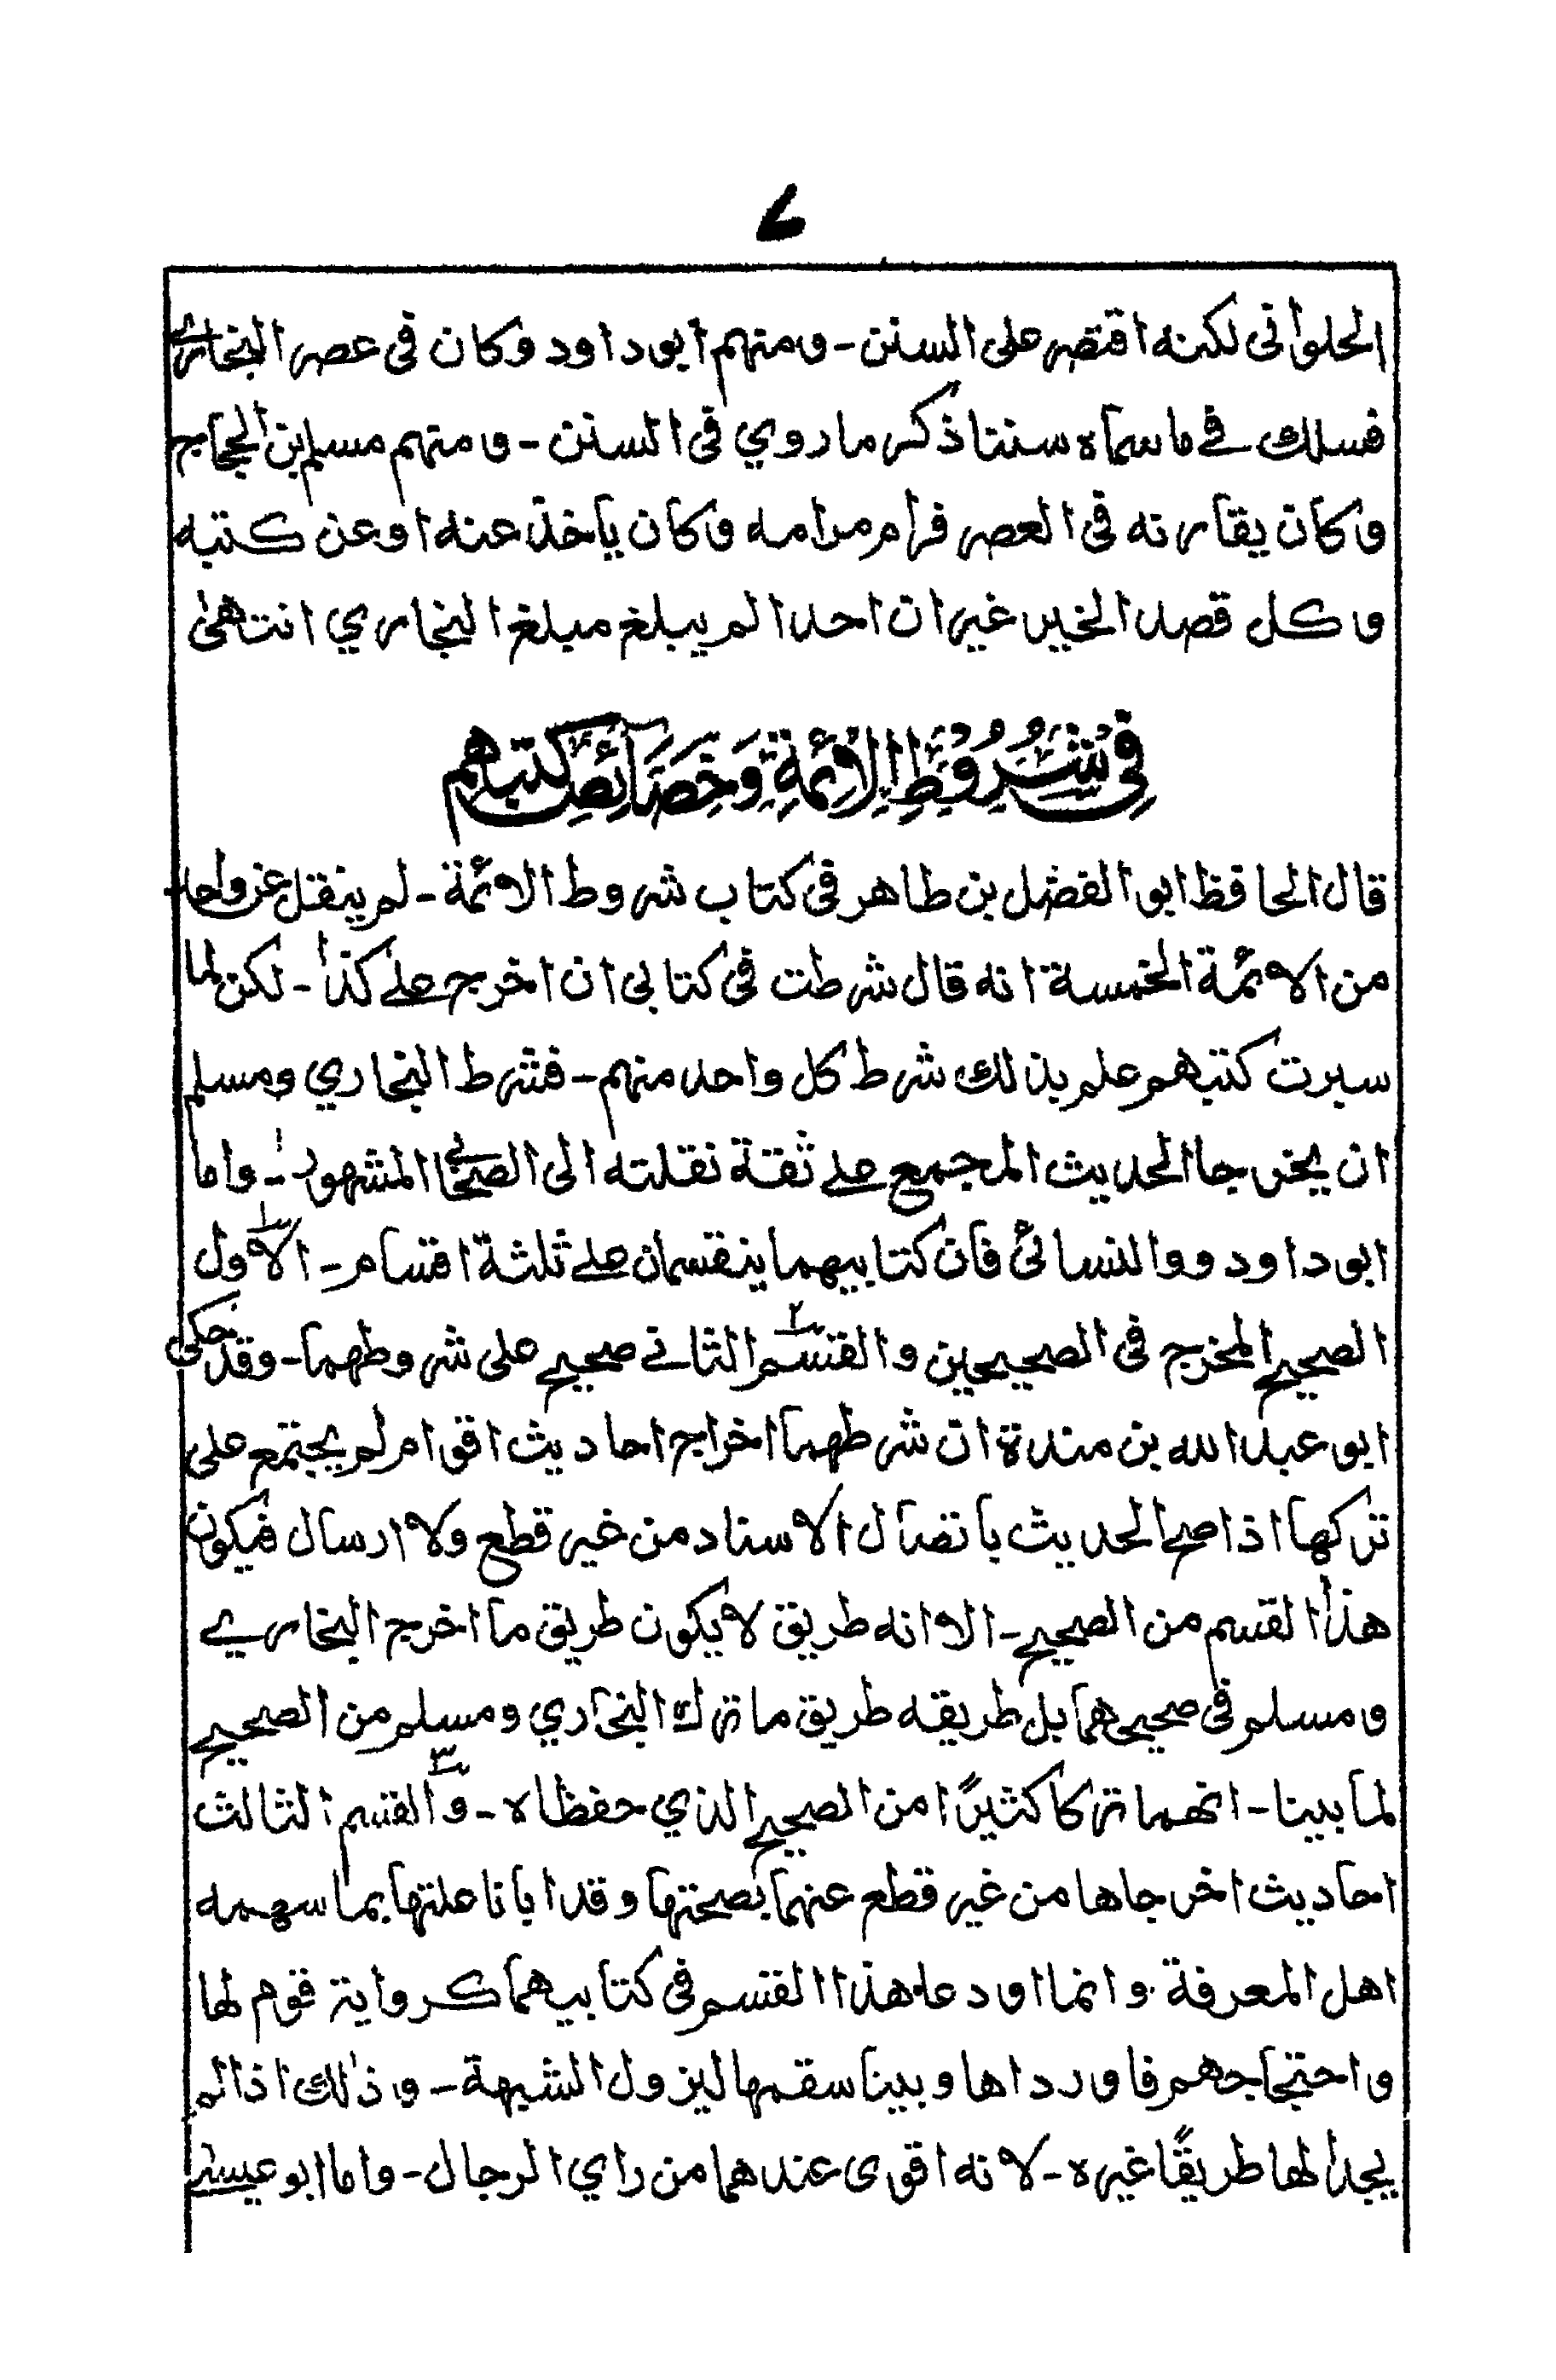 ۷
الحلوانی لکنه اقتصر علی السنن - ومنهم ابو داود وکان فی عصر البخاری
فسلك فی ما سماه سننا ذکر ما روي فی السنن - ومنهم مسلم بن الحجاج
وکان یقارنه فی العصر فرام مرامه وکان یاخذ عنه او عن کتبه
وکل قصد الخیر غیر ان احدا لم یبلغ مبلغ البخاري انتهی
فِي شُرُوْطِ الْاَئِمَّةِ وَخَصَآئِصِ کتبهم
قال الحافظ ابو الفضل بن طاهر فی کتاب شروط الائمة - لم ینقل عن واحد
من الائمة الخمسة انه قال شرطت فی کتابی ان اخرج علی کذا - لکن لما
سبرت کتبهم علم بذلك شرط کل واحد منهم - فشرط البخاري ومسلم
ان یخرجا الحدیث المجمع علی ثقة نقلته الی الصحابی المشهور - واما
ابو داود والنسائی فان کتابیهما ینقسمان علی ثلثة اقسام - الاول
الصحیح المخرج فی الصحیحین والقسم الثانی صحیح علی شروطهما - وقد حکی
ابو عبد الله بن مندة ان شرطهما اخراج احادیث اقوام لم یجتمع علی
ترکها اذا صح الحدیث باتصال الاسناد من غیر قطع ولا ارسال فیکون
هذا القسم من الصحیح - الا انه طریق لا یکون طریق ما اخرج البخاري
ومسلم فی صحیحهما بل طریقه طریق ما ترك البخاري ومسلم من الصحیح
لما بینا - انهما ترکا کثیرًا من الصحیح الذي حفظاه - والقسم الثالث
احادیث اخرجاها من غیر قطع عنهما بصحتها وقد ابانا علتها بما سهمه
اهل المعرفة وانما اودعا هذا القسم فی کتابیهما کروایة قوم لها
واحتجاجهم فاورداها وبینا سقمها لیزول الشبهة - وذلك اذا لم
یجدا لها طریقًا غیره - لانه اقوی عندهما من راي الرجال - واما ابو عیسی